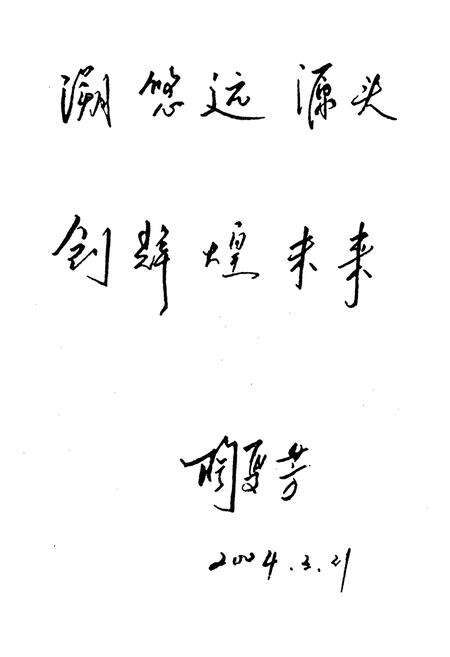 溯悠远源头
创辉煌未来
陶夏芳
2004.3.21